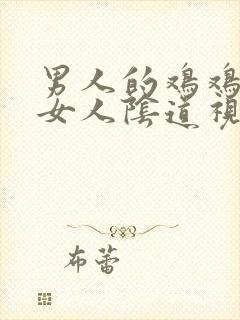 男人的鸡鸡
女人陰道视
布蕾